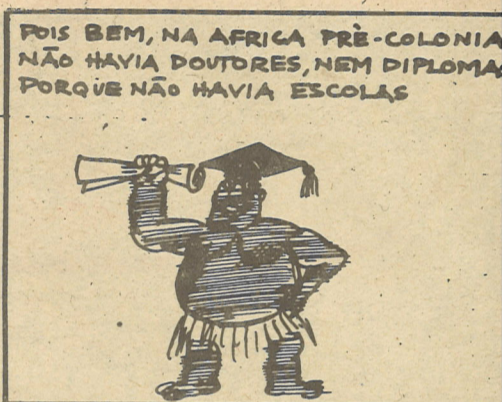 POIS BEM, NA AFRICA PRÈ-COLONIA
NÃO HAVIA DOUTORES, NEM DIPLOMA
PORQUE NÃO HAVIA ESCOLAS